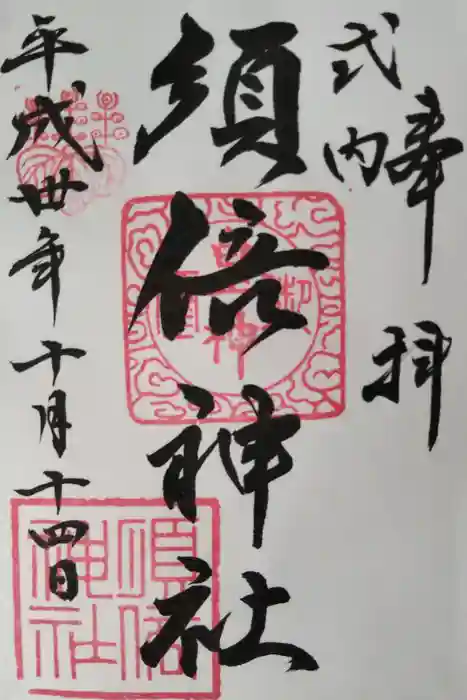 奉拝
式内
須倍神社
平成卅年十月十四日
須倍
神社